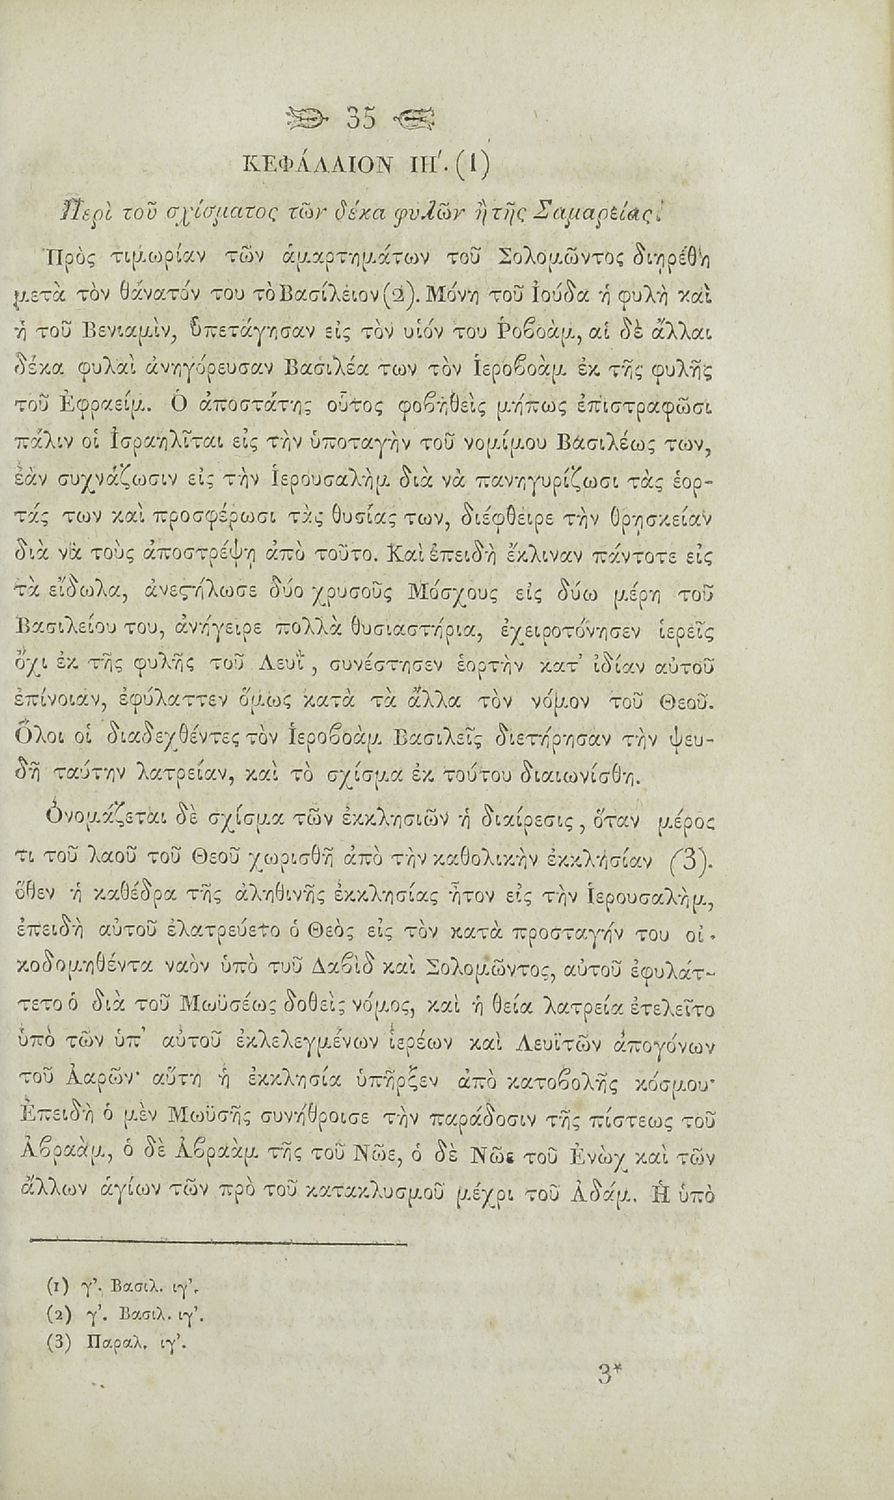 35
ΚΕΦΑΛΑΙΟΝ ΙΗ'. (1)
Περὶ τοῦ σχίσματος τῶν δέκα φυλῶν ἢ τῆς Σαμαρείας.
Πρὸς τιμωρίαν τῶν ἁμαρτημάτων τοῦ Σολομῶντος διῃρέθη
μετὰ τὸν θάνατόν του τὸ Βασίλειον (2). Μόνη τοῦ Ἰούδα ἡ φυλὴ καὶ
ἡ τοῦ Βενιαμὶν, ὑπετάγησαν εἰς τὸν υἱόν του Ῥοβοὰμ, αἱ δὲ ἄλλαι
δέκα φυλαὶ ἀνηγόρευσαν Βασιλέα των τὸν Ἱεροβοὰμ ἐκ τῆς φυλῆς
τοῦ Ἐφραείμ. Ὁ ἀποστάτης οὗτος φοβηθεὶς μήπως ἐπιστραφῶσι
πάλιν οἱ Ἰσραηλῖται εἰς τὴν ὑποταγὴν τοῦ νομίμου Βασιλέως των,
ἐὰν συχνάζωσιν εἰς τὴν Ἱερουσαλὴμ διὰ νὰ πανηγυρίζωσι τὰς ἑορ-
τάς των καὶ προσφέρωσι τὰς θυσίας των, διέφθειρε τὴν θρησκείαν
διὰ νὰ τοὺς ἀποστρέψῃ ἀπὸ τοῦτο. Καὶ ἐπειδὴ ἔκλιναν πάντοτε εἰς
τὰ εἴδωλα, ἀνεςήλωσε δύο χρυσοῦς Μόσχους εἰς δύω μέρη τοῦ
Βασιλείου του, ἀνήγειρε πολλὰ θυσιαστήρια, ἐχειροτόνησεν ἱερεῖς
ὄχι ἐκ τῆς φυλῆς τοῦ Λευῒ, συνέστησεν ἑορτὴν κατ' ἰδίαν αὐτοῦ
ἐπίνοιαν, ἐφύλαττεν ὅμως κατὰ τὰ ἄλλα τὸν νόμον τοῦ Θεοῦ.
Ὅλοι οἱ διαδεχθέντες τὸν Ἱεροβοὰμ Βασιλεῖς διετήρησαν τὴν ψευ-
δῆ ταύτην λατρείαν, καὶ τὸ σχίσμα ἐκ τούτου διαιωνίσθη.
Ὀνομάζεται δὲ σχίσμα τῶν ἐκκλησιῶν ἡ διαίρεσις, ὅταν μέρος
τι τοῦ λαοῦ τοῦ Θεοῦ χωρισθῇ ἀπὸ τὴν καθολικὴν ἐκκλησίαν (3).
ὅθεν ἡ καθέδρα τῆς ἀληθινῆς ἐκκλησίας ἦτον εἰς τὴν Ἱερουσαλὴμ,
ἐπειδὴ αὐτοῦ ἐλατρεύετο ὁ Θεὸς εἰς τὸν κατὰ προσταγήν του οἰ-
κοδομηθέντα ναὸν ὑπὸ τυῦ Δαβὶδ καὶ Σολομῶντος, αὐτοῦ ἐφυλάτ-
τετο ὁ διὰ τοῦ Μωϋσέως δοθεὶς νόμος, καὶ ἡ θεία λατρεία ἐτελεῖτο
ὑπὸ τῶν ὑπ' αὐτοῦ ἐκλελεγμένων ἱερέων καὶ Λευϊτῶν ἀπογόνων
τοῦ Ἀαρῶν· αὕτη ἡ ἐκκλησία ὑπῆρξεν ἀπὸ κατοβολῆς κόσμου·
Ἐπειδὴ ὁ μὲν Μωϋσῆς συνήθροισε τὴν παράδοσιν τῆς πίστεως τοῦ
Ἀβραὰμ, ὁ δὲ Ἀβραὰμ τῆς τοῦ Νῶε, ὁ δὲ Νῶε τοῦ Ἐνὼχ καὶ τῶν
ἄλλων ἁγίων τῶν πρὸ τοῦ κατακλυσμοῦ μέχρι τοῦ Ἀδάμ. Ἡ ὑπὸ
(1) γ'. Βασιλ. ιγ'.
(2) γ'. Βασιλ. ιγ'.
(3) Παραλ. ιγ'.
3*